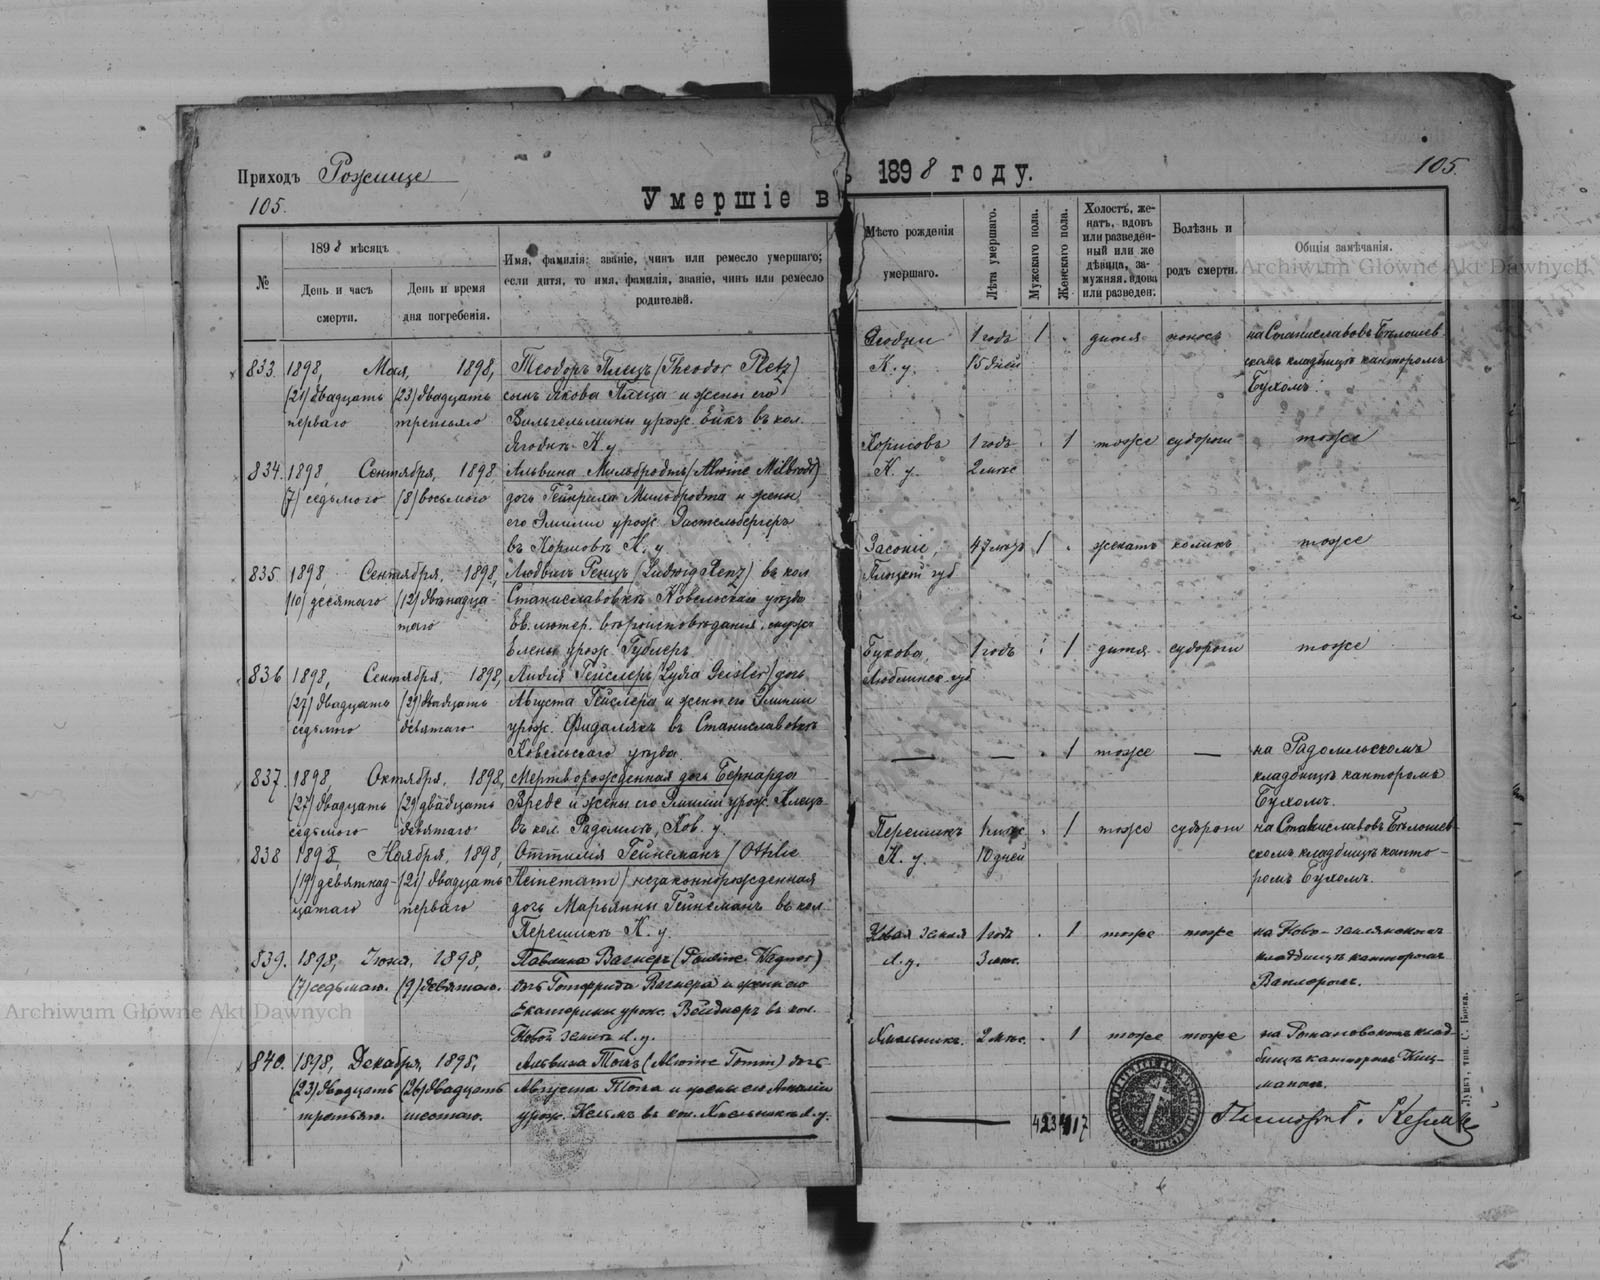 Приходъ Рожище
105.
Умершіе въ 1898 году.
105.
№
1898 мѣсяцъ
День и часъ
смерти.
День и время
дня погребенія.
Имя, фамилія; званіе, чинъ или ремесло умершаго;
если дитя, то имя, фамилія, званіе, чинъ или ремесло
родителей.
Мѣсто рожденія
умершаго.
Лѣта умершаго.
Мужскаго пола.
Женскаго пола.
Холостъ, же-
натъ, вдовъ
или разведен-
ный или же
дѣвица, за-
мужняя, вдова
или разведен.
Болѣзнь и
родъ смерти.
Общія замѣчанія.
833. 1898, Мая, 1898, Теодоръ Плецъ (Theodor Pletz)
(21) двадцать (23) двадцать сынъ Якова Плеца и жены его
перваго третьяго Вильгельмины урож. Ейкъ въ кол.
Ягоднѣ К. у.
Ягодни 1 годъ 1 . дитя поносъ на Станиславовъ Бѣлошев-
К. у. 15 дней скомъ кладбищѣ канторомъ
Бухомъ.
834. 1898, Сентября, 1898, Альвина Мильбродтъ (Alwine Milbrodt)
(7) седьмого (8) восьмого дочь Гейнриха Мильбродта и жены
его Эмиліи урож.
въ К. у.
1 годъ . 1 тоже судороги тоже
К. у. 2 мѣс
835. 1898, Сентября, 1898, Людвигъ Ренцъ (Ludwig Renz) въ кол
(10) десятаго (12) двѣнадца Станиславовкѣ Ковельскаго уѣзда
таго Ев. лютер. вѣроисповѣданія, мужъ
Елены урож. Гублеръ
47 лѣтъ 1 . женатъ коликъ тоже
Плоцкой губ
836 1898, Сентября, 1898, Лидія Гейслеръ (Lydia Geisler) дочь
(27) двадцать (29) двадцать Августа Гейслера и жены его Эмиліи
седьмого девятаго урож. въ Станиславовкѣ
Ковельскаго уѣзда.
Букова, 1 годъ . 1 дитя судороги тоже
Люблинск. губ
837. 1898, Октября, 1898, Мертворожденная дочь Бернарда
(27) двадцать (29) двадцать Вреде и жены его Эмиліи урож. Клецъ
седьмого девятаго въ кол. Радомлѣ, Ков. у.
— — . 1 тоже — на Радомльскомъ
кладбищѣ канторомъ
Бухомъ.
838 1898, Ноября, 1898, Оттилія Гейнеманъ (Othlie
(19) девятнад- (21) двадцать Heinemann) незаконнорожденная
цатаго перваго дочь Марьянны Гейнеманъ въ кол.
Перешикѣ К. у.
. 1 тоже судороги на Станиславовъ Бѣлошев-
К. у. 10 дней скомъ кладбищѣ канто-
ромъ Бухомъ.
839. 1898, Іюня, 1898, Павлина Вагнеръ (Pauline Wagner)
(7) седьмаго. (9) девятаго. дочь Готфрида Вагнера и жены его
Екатерины урож. Вейднеръ въ кол.
Новой землѣ Л. у.
Новая земля 1 годъ . 1 тоже тоже на Ново-
Л. у. 3 мѣс. кладбищѣ канторомъ
840. 1898, Декабря, 1898, Альвина Томъ (Alwine Tomm) дочь
(23) двадцать (26) двадцать Августа Тома и жены его Амаліи
третьяго. шестаго. урож. Кельмъ въ кол. Хмельникѣ Л. у.
Хмельникъ. 2 мѣс. . 1 тоже тоже на Романовскомъ клад-
бищѣ канторомъ Киц-
маномъ.
423 417
Пасторъ
Луцкъ, тип. С. Бокса.
Archiwum Główne Akt Dawnych
Archiwum Główne Akt Dawnych